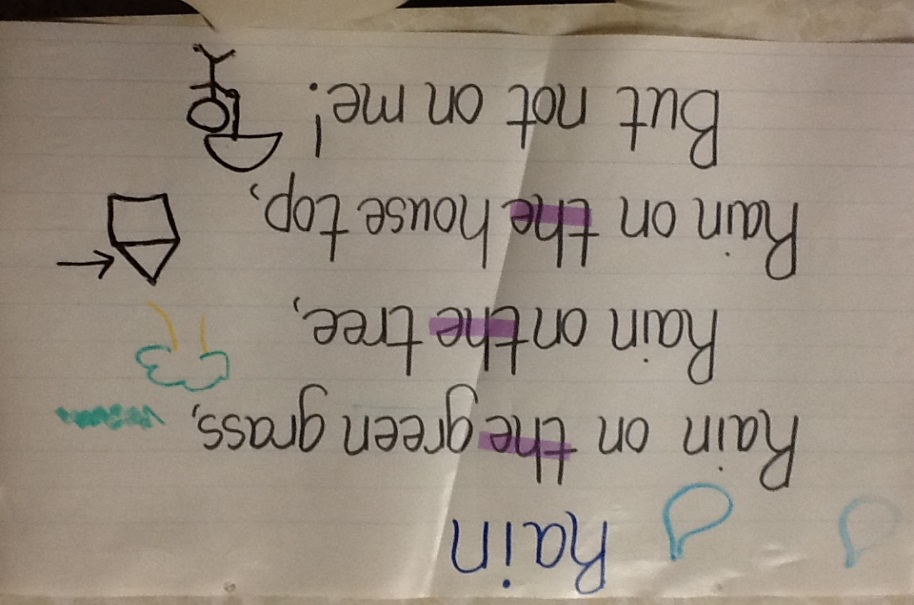 Rain
Rain on the green grass,
Rain on the tree,
Rain on the house top,
But not on me!